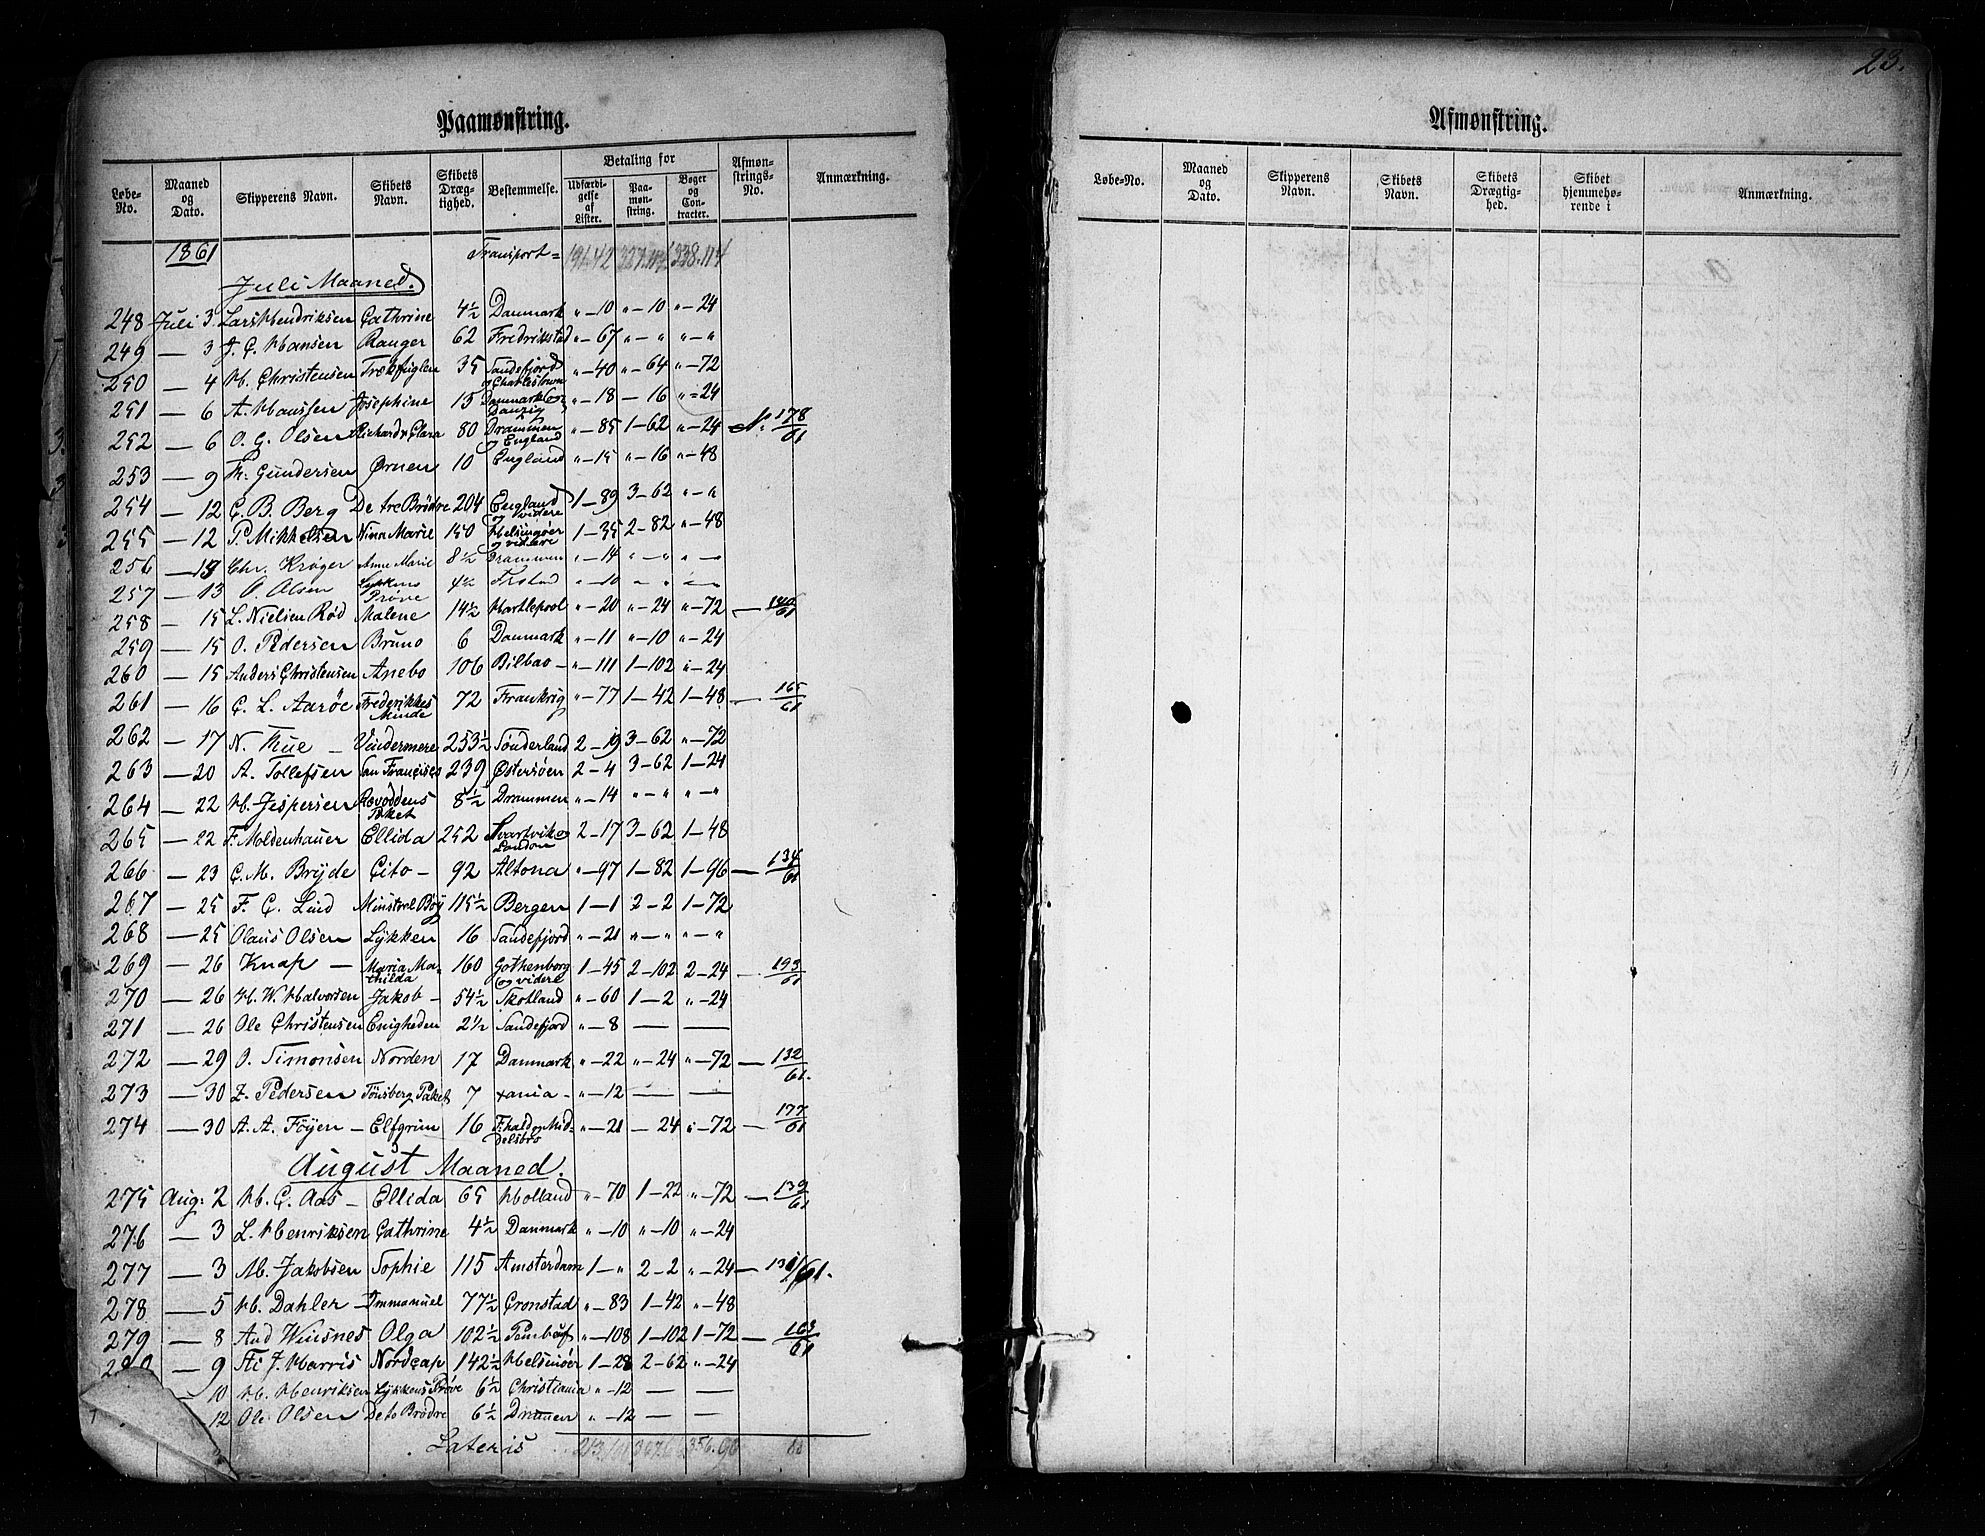 Paamønstring.
Løbe-No. Maaned og Dato. Skipperens Navn. Skibets Navn. Skibets Drægtighed. Bestemmelse. Betaling for Udfærdigelse af Lister. Paamønstring. Bøger og Contracter. Afmønstrings-No. Anmærkning.
1861 Transport = 191.42 238.114
Juli Maaned.
248 Juli 3 Lars Hendriksen Cathrine 4½ Danmark " — 10 " — 10 " — 24
249 — 3 J. C. Hansen Ranger 62 Fredrikstad " — 67 " — " " — "
250 — 4 H. Christensen Trækfuglen 35 Sandefjord og Charlestown " — 40 " — 64 " — 72
251 — 6 A. Hanssen Josephine 15 Danmark og Danzig " — 18 — 16 " = 24
252 — 6 O. G. Olsen Richard & Clara 80 Drammen og England " — 85 1 — 62 " — 24 No 178/61
253 — 9 Th. Gundersen Ørnen 10 England " — 15 " — 16 " — 48
254 — 12 C. B. Berg De tre Brødre 204 England og videre 1 — 89 3 — 62 " — "
255 — 12 P. Mikkelsen Nina Marie 150 Helsingøer og videre 1 — 35 2 — 82 " — 48
256 — 13 Chr. Krøger Anne Marie 8½ Drammen " — 14 " — " " —
257 — 13 O. Olsen Lykkens Prøve 4½ Frstad " — 10 " — " —
258 — 15 L. Nielsen Rød Malene 14½ Hartlepool " — 20 " — 24 " — 72 — /61
259 — 15 O. Pedersen Bruno 6 Danmark " — 11 " — 10 " — 24
260 — 15 Anders Christensen Anebo 106 Bilbao — " — 111 1 — 102 " — 24
261 — 16 C. L. Aarøe Frederikkes Minde 72 Frankrig " — 77 1 — 42 1 — 48 — 165/61
262 — 17 N. Thue — Vindermere 253½ Sønderland 2 — 19 3 — 62 " — 72
263 — 20 A. Tollefsen San Francisco 239 Østersøen 2 — 4 3 — 62 1 — 24
264 — 22 H. Jespersen Rævoddens Paket 8½ Drammen " — 14 " — " " — "
265 — 22 F. Moldenhauer Ellida 252 Svartvik og London 2 — 17 3 — 62 1 — 48
266 — 23 C. M. Bryde Cito — 92 Altona " — 97 1 — 82 1 — 96 — 134/61
267 — 25 F. C. Lind Minstrel Boy 115½ Bergen 1 — 1 2 — 2 1 — 72
268 — 25 Olaus Olsen Lykken 16 Sandefjord " — 21 " — " " — "
269 — 26 Knap — Maria Mathilda 160 Gothenborg og videre 1 — 45 2 — 102 2 — 24 — 193/61
270 — 26 H. W. Halvorsen Jakob — 54½ Skotland " — 60 1 — 2 " — 24
271 — 26 Ole Christensen Enigheden 2½ Sandefjord " — 8 — —
272 — 29 O. Simonsen Norden 17 Danmark " — 22 " — 24 " — 72 — 132/61.
273 — 30 Z. Pedersen Tønsberg Paket 7 Xania — " — 12 — —
274 — 30 A. A. Föyen — Elfgrim 16 Frhald og Middelsbro " — 21 — 24 " — 72 — 177/61
August Maaned.
275 Aug: 2 H. C. Aas — Ellida 65 Holland " — 70 1 — 22 " — 72 — 139/61
276 — 3 L. Henriksen Cathrine 4½ Danmark " — 10 " — 10 " — 24
277 — 3 M. Jakobsen Sophie 115 Amsterdam 1 — " 2 — 2 " — 24 — 131/61.
278 — 5 H. Dahler — Immanuel 77½ Cronstad " — 83 1 — 42 " — 48
279 — 8 And Wiisnes Olga 102½ " — 108 1 — 102 1 — 72 — 163/61
280 — 9 Sti J. Harris Nordcap 142½ Helsinøer 1 — 28 2 — 62 " — 24
10 H. Henriksen Lykkens Prøve 6½ Christiania " — 12 — —
12 Ole Olsen De to Brødre 6½ Drammen " — 12 — —
Lateris 356.90
23.
Afmønstring.
Løbe-No. Maaned og Dato. Skipperens Navn. Skibets Navn. Skibets Drægtighed. Skibet hjemmehørende i Anmærkning.